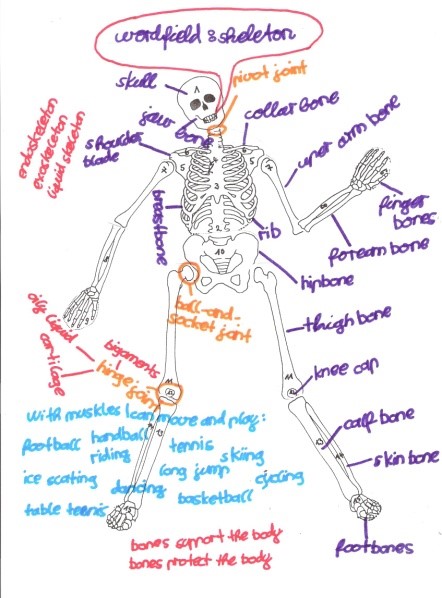 wordfield : skeleton
skull
pivot joint
jaw bone
collar bone
endoskeleton
exoskeleton
liquid skeleton
shoulder
blade
upper arm bone
breastbone
finger
bones
rib
foream bone
hipbone
ball-and-
socket joint
oily liquid
cartilage
ligaments
hinge joint
thigh bone
knee cap
With muskles I can move and play:
football
handball
tennis
riding
skiing
ice scating
long jump
cycling
dancing
basketball
table tennis
calf bone
skin bone
footbones
bones support the body
bones protect the body